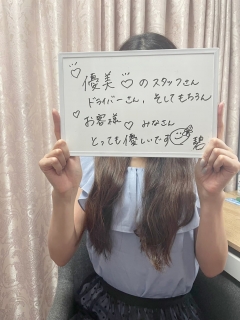 ♡優美♡のスタッフさん
ドライバーさん、そしてもちろん
♡お客様♡みなさん
とっても優しいです
碧